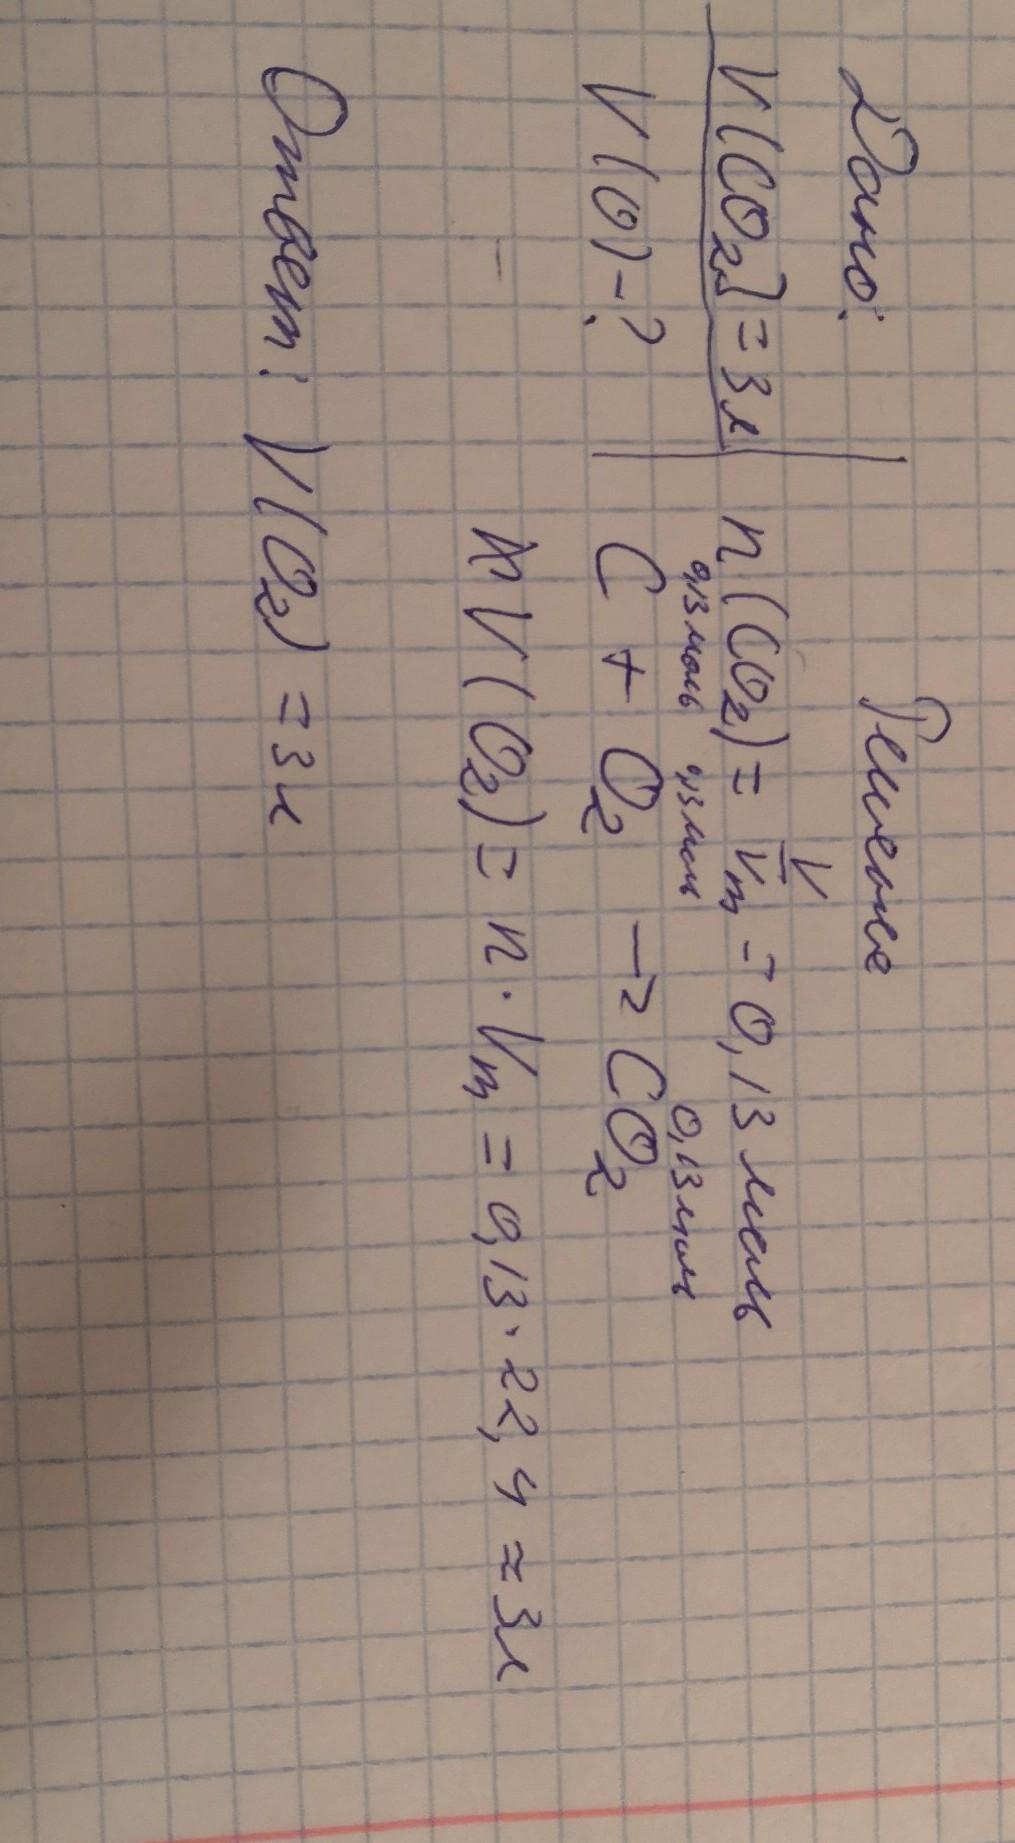 Дано:
Решение
V(CO₂) = 3л
n(CO₂) = V/Vm = 0,13 моль
0,13 моль 0,13 моль 0,13 моль
V(O) - ?
C + O₂ → CO₂
V(O₂) = n · Vm = 0,13 · 22,4 ≈ 3л
Ответ: V(O₂) = 3л